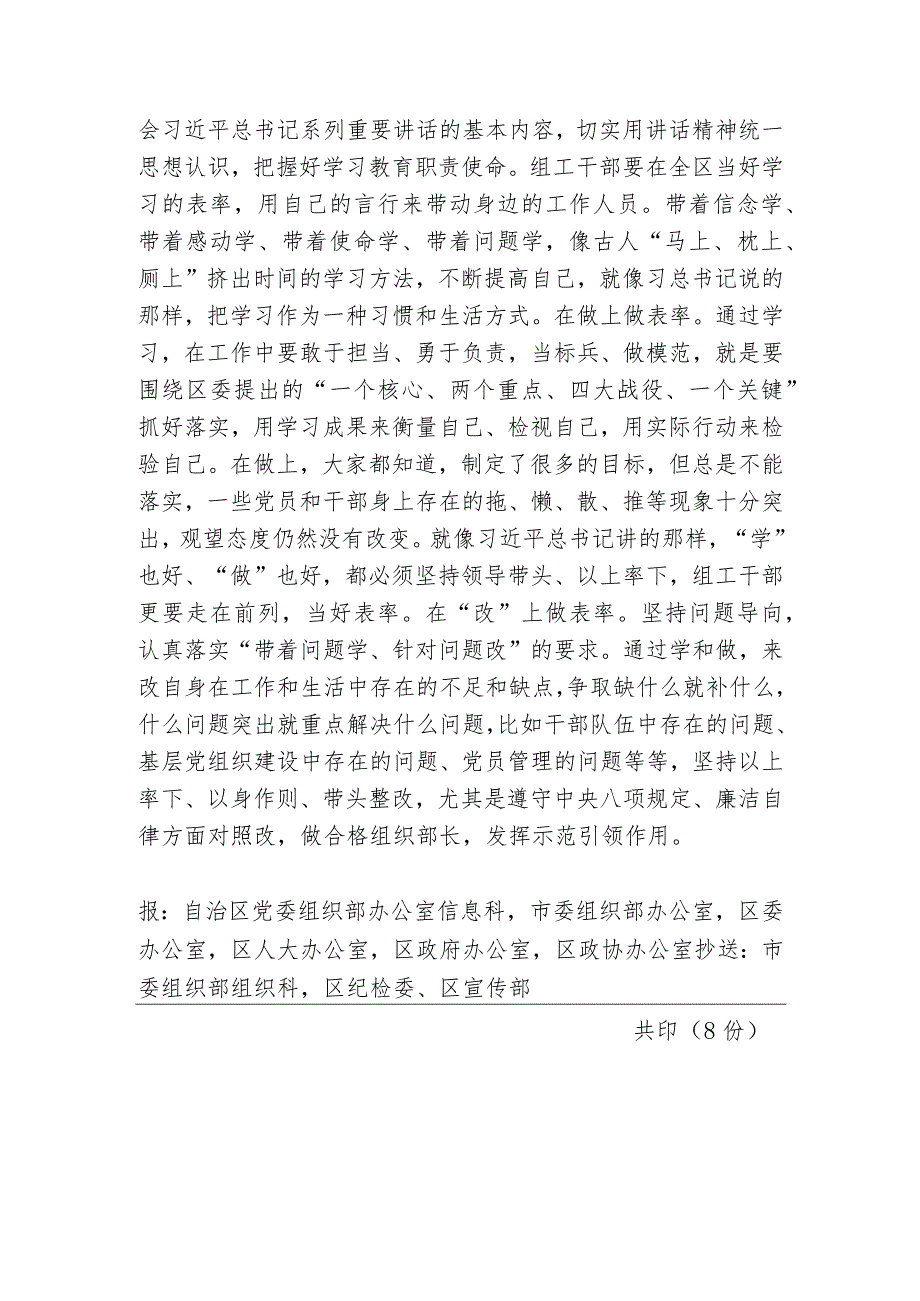 会习近平总书记系列重要讲话的基本内容，切实用讲话精神统一
思想认识，把握好学习教育职责使命。组工干部要在全区当好学
习的表率，用自己的言行来带动身边的工作人员。带着信念学、
带着感动学、带着使命学、带着问题学，像古人“马上、枕上、
厕上”挤出时间的学习方法，不断提高自己，就像习总书记说的
那样，把学习作为一种习惯和生活方式。在做上做表率。通过学
习，在工作中要敢于担当、勇于负责，当标兵、做模范，就是要
围绕区委提出的“一个核心、两个重点、四大战役、一个关键”
抓好落实，用学习成果来衡量自己、检视自己，用实际行动来检
验自己。在做上，大家都知道，制定了很多的目标，但总是不能
落实，一些党员和干部身上存在的拖、懒、散、推等现象十分突
出，观望态度仍然没有改变。就像习近平总书记讲的那样，“学”
也好、“做”也好，都必须坚持领导带头、以上率下，组工干部
更要走在前列，当好表率。在“改”上做表率。坚持问题导向，
认真落实“带着问题学、针对问题改”的要求。通过学和做，来
改自身在工作和生活中存在的不足和缺点，争取缺什么就补什么，
什么问题突出就重点解决什么问题，比如干部队伍中存在的问题、
基层党组织建设中存在的问题、党员管理的问题等等，坚持以上
率下、以身作则、带头整改，尤其是遵守中央八项规定、廉洁自
律方面对照改，做合格组织部长，发挥示范引领作用。
报：自治区党委组织部办公室信息科，市委组织部办公室，区委
办公室，区人大办公室，区政府办公室，区政协办公室抄送：市
委组织部组织科，区纪检委、区宣传部
共印（8 份）